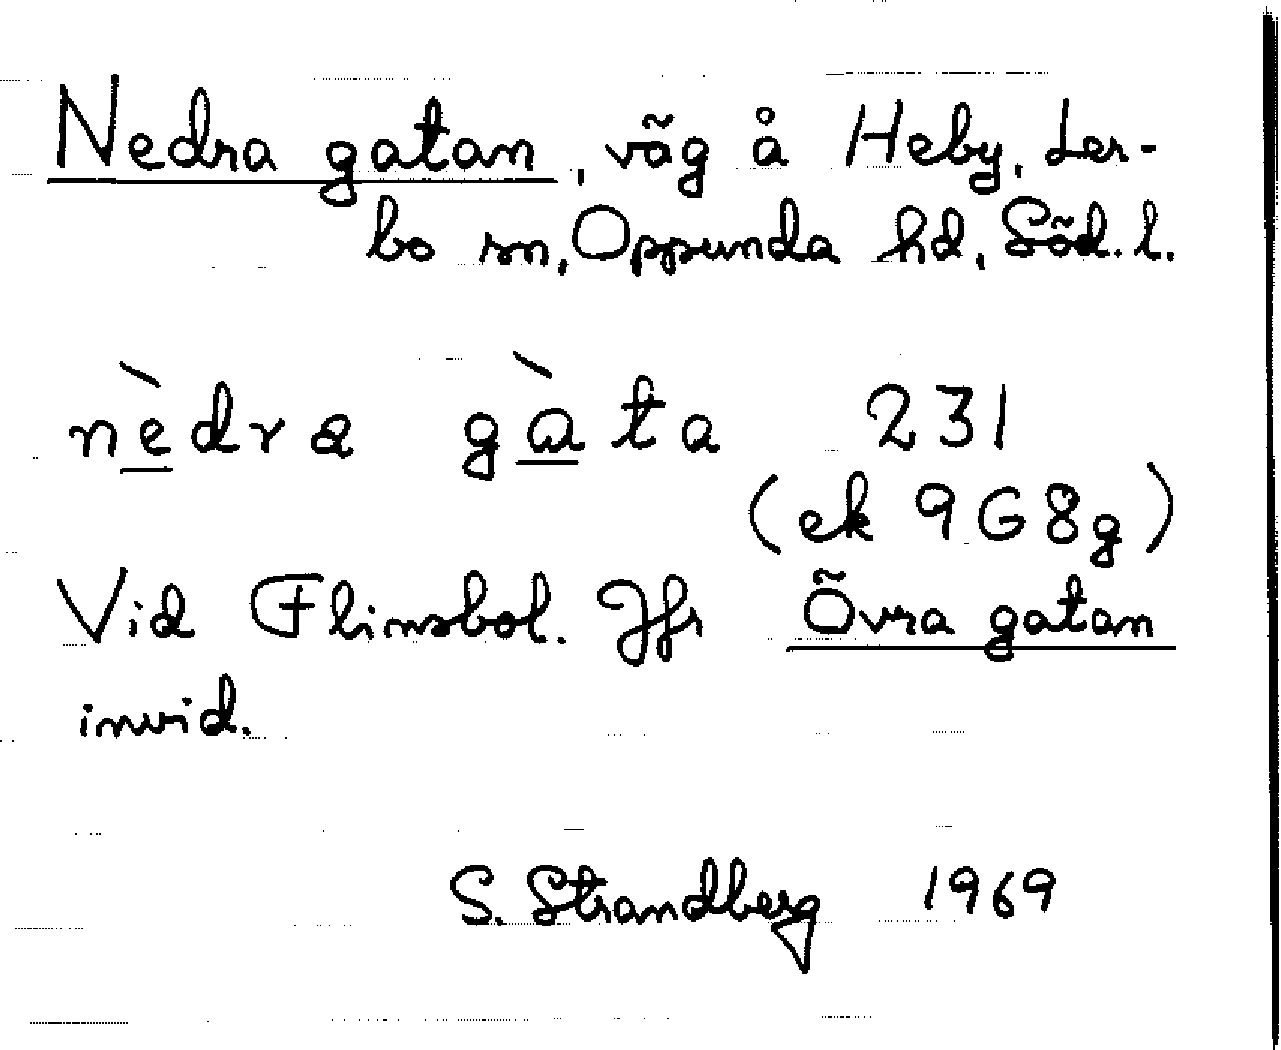 Nedra gatan, väg å Heby, Ler-
bo sn, Oppunda hd, Söd. l.
nèdra gàta 231
(ek 9G8g)
Vid Flinsbol. Jfr Övra gatan
invid.
S. Strandberg 1969